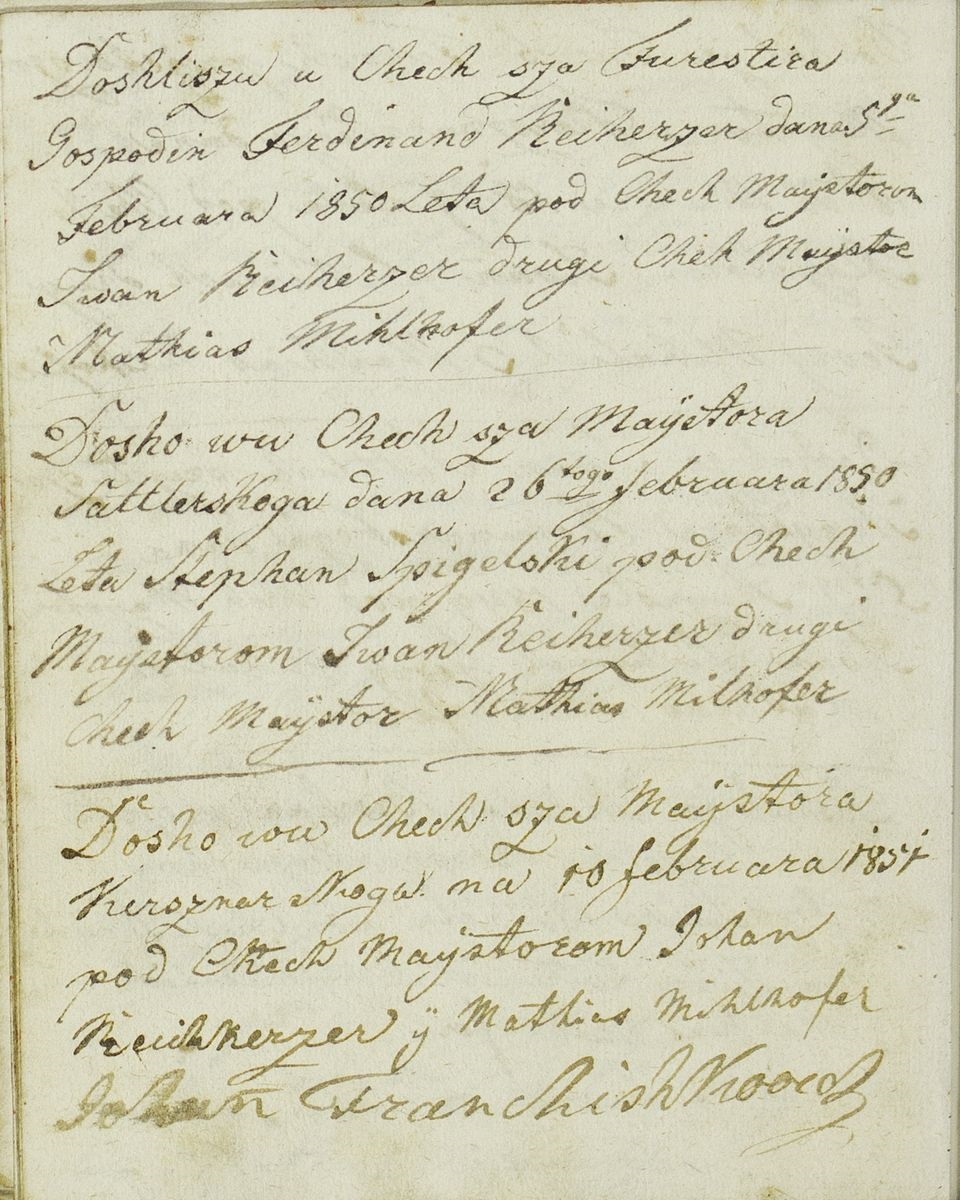 Doshliszu u Chech sza Furestira
Gospodin Ferdinand Reiherzer dana 5ga
Februara 1850 Leta pod Chech Maÿstorom
Iwan Reiherzer drugi Chek Maÿstor
Mathias Mihlhofer
Dosho wu Chech sza Maÿstora
Sattlerskoga dana 26togo februara 1850
Leta Stephan Spigelski pod Chech
Maÿstorom Iwan Reiherzer drugi
Chech Maÿstor Mathias Milhofer
Dosho wu Chech sza Maÿstora
Kersznarskoga na 10 februara 1851
pod Chech Maÿstorom Johan
Reichkerzer ÿ Mathias Mihlhofer
Johan Franchishkovich